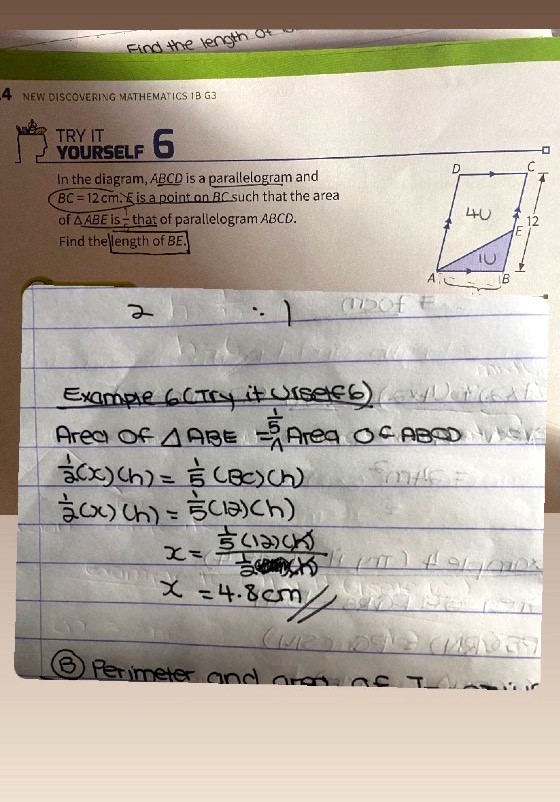 Find the length of
4 NEW DISCOVERING MATHEMATICS 1B G3
TRY IT
YOURSELF 6
In the diagram, ABCD is a parallelogram and
BC = 12 cm. E is a point on BC such that the area
of △ABE is 1/5 that of parallelogram ABCD.
Find the length of BE.
D C
4U
E 12
1U
A B
2 : 1
Example 6 (Try it Urself 6)
Area of △ ABE = 1/5 Area of ABCD
1/2(x)(h) = 1/5 (BC)(h)
1/2(x)(h) = 1/5(12)(h)
x = 1/5(12)(h) / 1/2(h)
x = 4.8cm //
Ⓑ Perimeter and area of